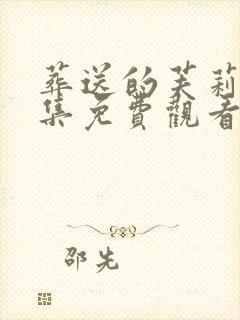 葬送的芙莉
集免費觀看
邵先